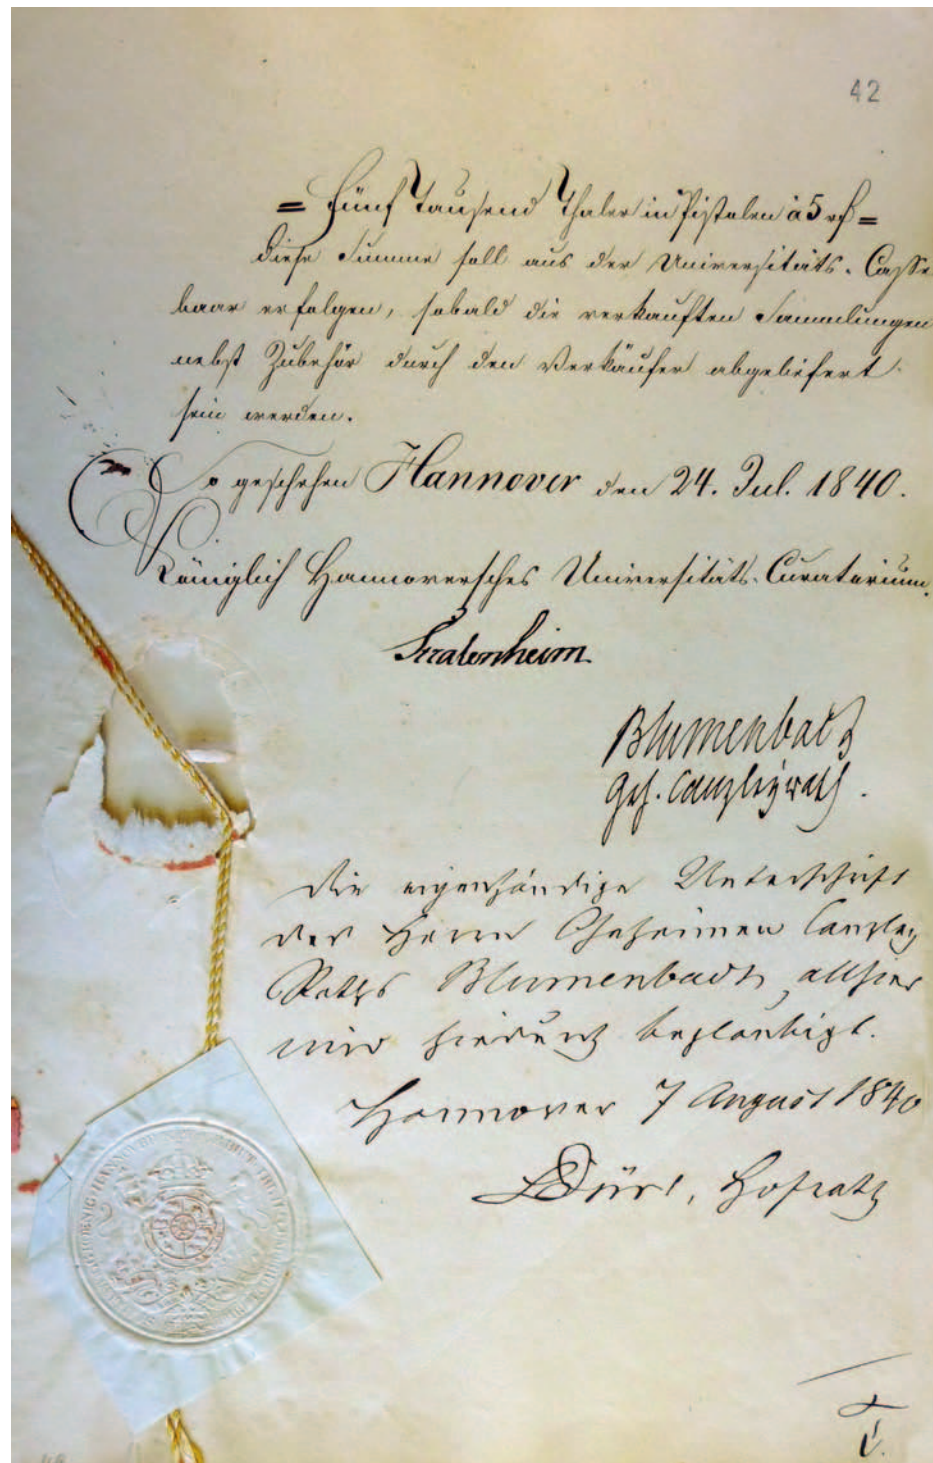 42
= Fünf Tausend Thaler in Pistolen à 5 rß =
diese Summe soll aus der Universitäts-Casse
baar erfolgen, sobald die verkauften Sammlungen
nebst Zubehör durch den Verkäufer abgeliefert
sein werden.
So geschehen Hannover den 24. Jul. 1840.
Königlich Hannoversches Universitäts-Curatorium.
Stralenheim.
Blumenbach
Geh. Canzleyrath.
Die eigenhändige Unterschrift
des Herrn Geheimen Canzley
Raths Blumenbach, allhier
wird hiedurch beglaubigt.
Hannover 7 August 1840
Hofrath